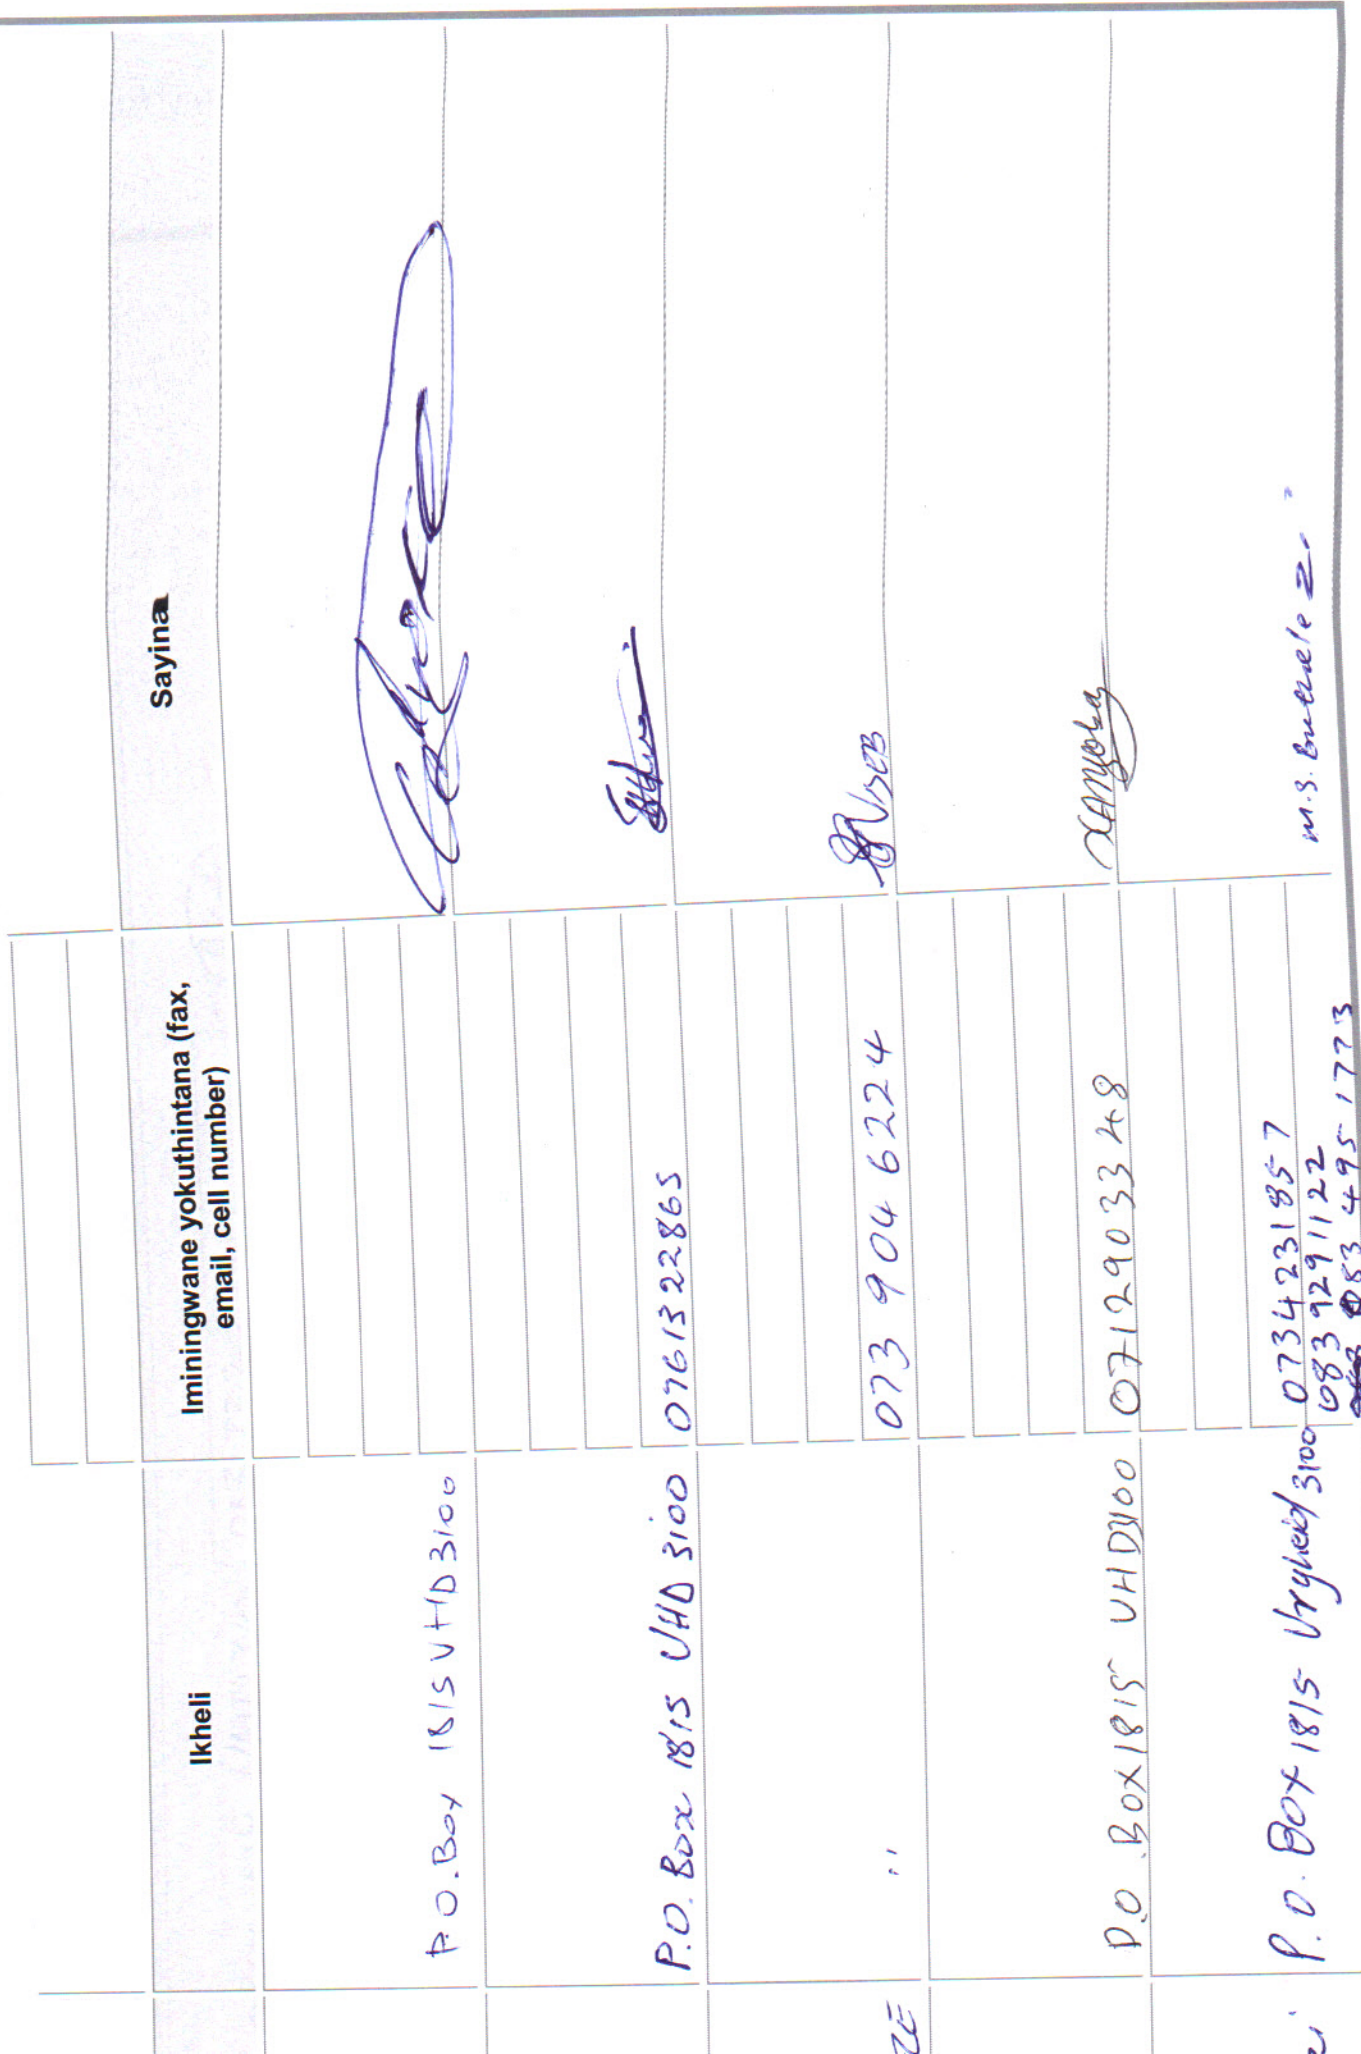 Ikheli
Imininingwane yokuthintana (fax,
email, cell number)
Sayina
P.O. Box 1815 VHD 3100
P.O. Box 1815 VHD 3100 0761322865
ZE " 073 904 6224
P.O. BOX 1815 VHD3100 0712903348
P.O. BOX 1815 Vryheid 3100 0734231857
083 9291122
083 495 1773
M.S. Buthelezi